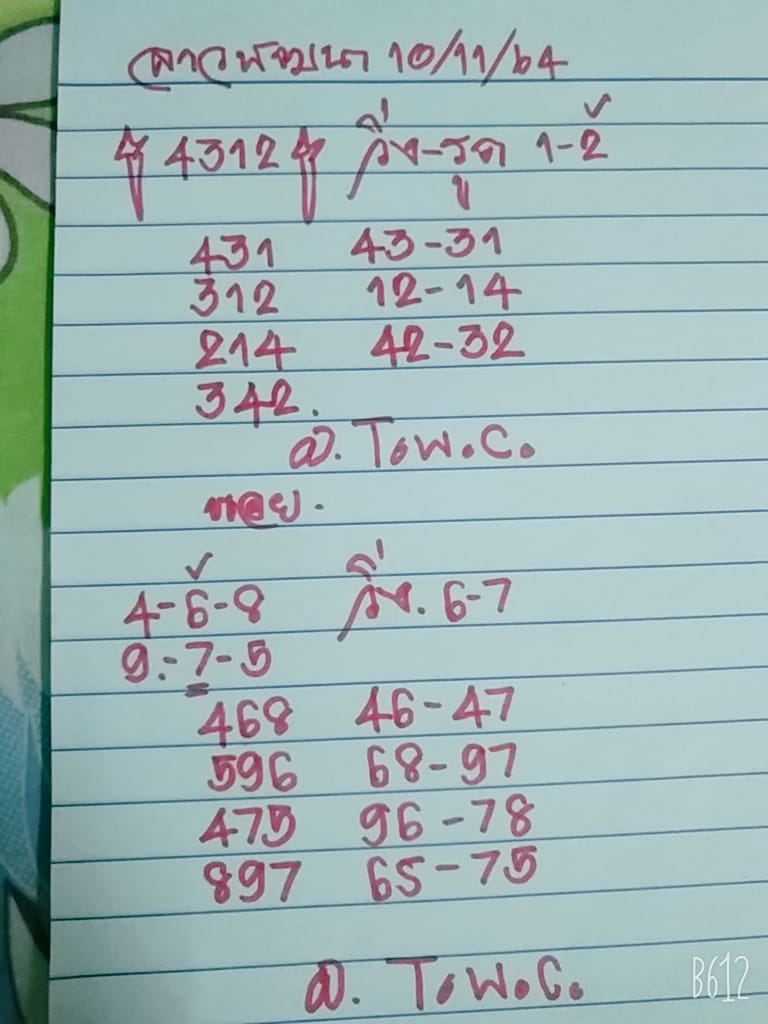 ลาวพัฒนา 10/11/64
4312 วิ่ง-รูด 1-2
431 43-31
312 12-14
214 42-32
342.
ล. T.W.C.
หอย.
4-6-8 วิ่ง. 6-7
9.-7-5
468 46-47
596 68-97
475 96-78
897 65-75
ล. T.W.C.
B612